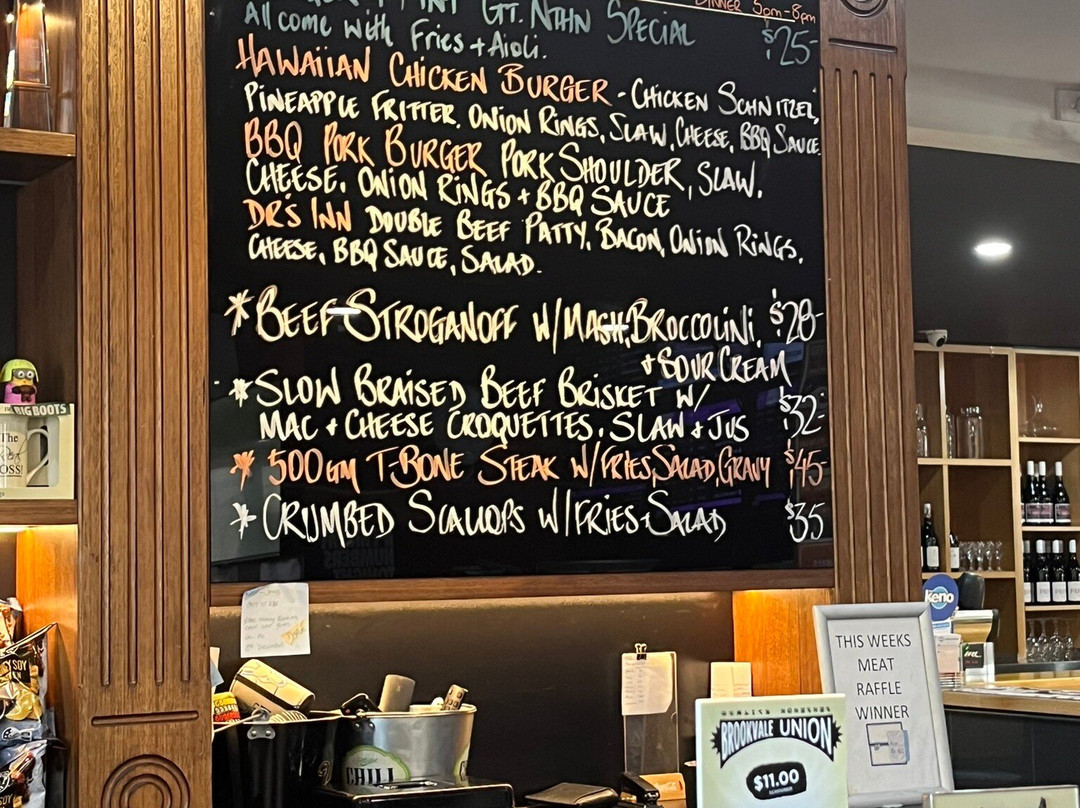 DINNER 5pm-8pm
PINT GT. NTHN SPECIAL
All come with Fries + Aioli. $25-
HAWAIIAN CHICKEN BURGER - CHICKEN SCHNITZEL,
PINEAPPLE FRITTER, ONION RINGS, SLAW, CHEESE, BBQ SAUCE.
BBQ PORK BURGER PORK SHOULDER, SLAW,
CHEESE, ONION RINGS + BBQ SAUCE
DR'S INN DOUBLE BEEF PATTY, BACON, ONION RINGS,
CHEESE, BBQ SAUCE, SALAD.
* BEEF STROGANOFF W/MASH, BROCCOLINI, $28-
+ SOUR CREAM
* SLOW BRAISED BEEF BRISKET W/
MAC + CHEESE CROQUETTES, SLAW + JUS $32-
* 500GM T-BONE STEAK W/FRIES, SALAD, GRAVY $45
* CRUMBED SCALLOPS W/FRIES + SALAD $35
BIG BOOTS
The
BOSS!
SOY
CHILL
keno
THIS WEEKS
MEAT
RAFFLE
WINNER
BROOKVALE UNION
$11.00